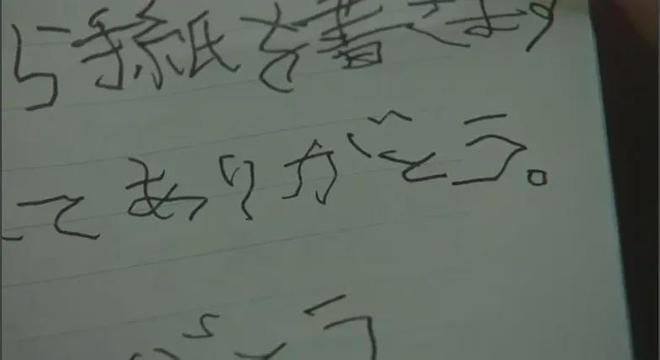 ら手紙を書きます
てありがとう。
とう